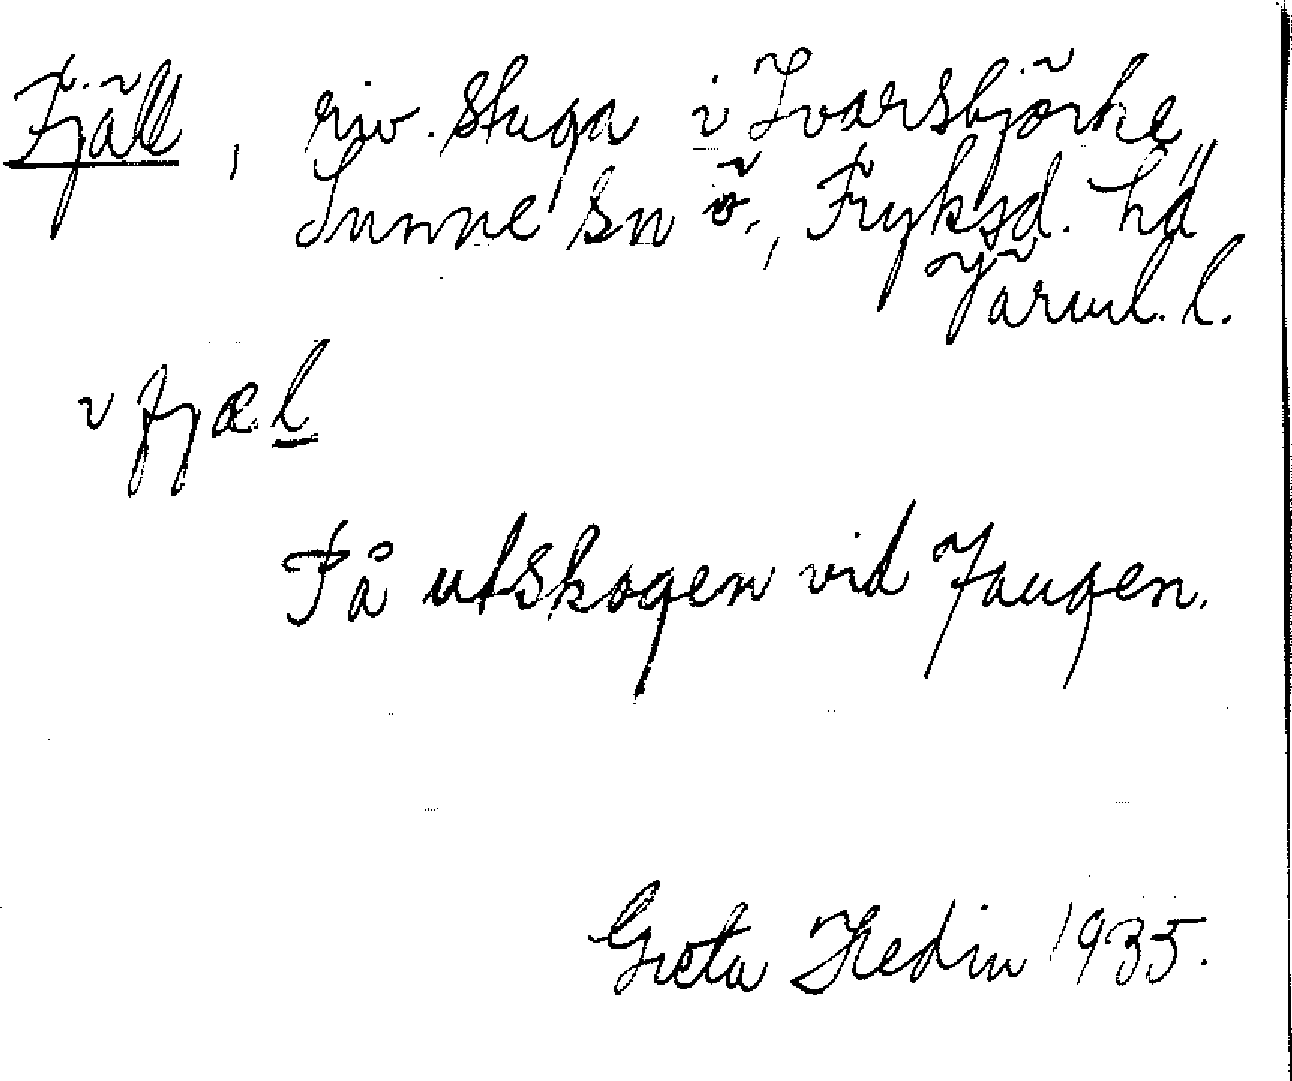 Fjäll, riv. stuga i Ivarsbjörke
Sunne sn ö., Fryksd. hd
Värml. l.
v fjæl
På utskogen vid Faugen.
Greta Hedin 1935.